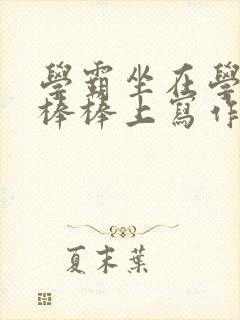 學霸坐在學
棒棒上寫作
夏末葉